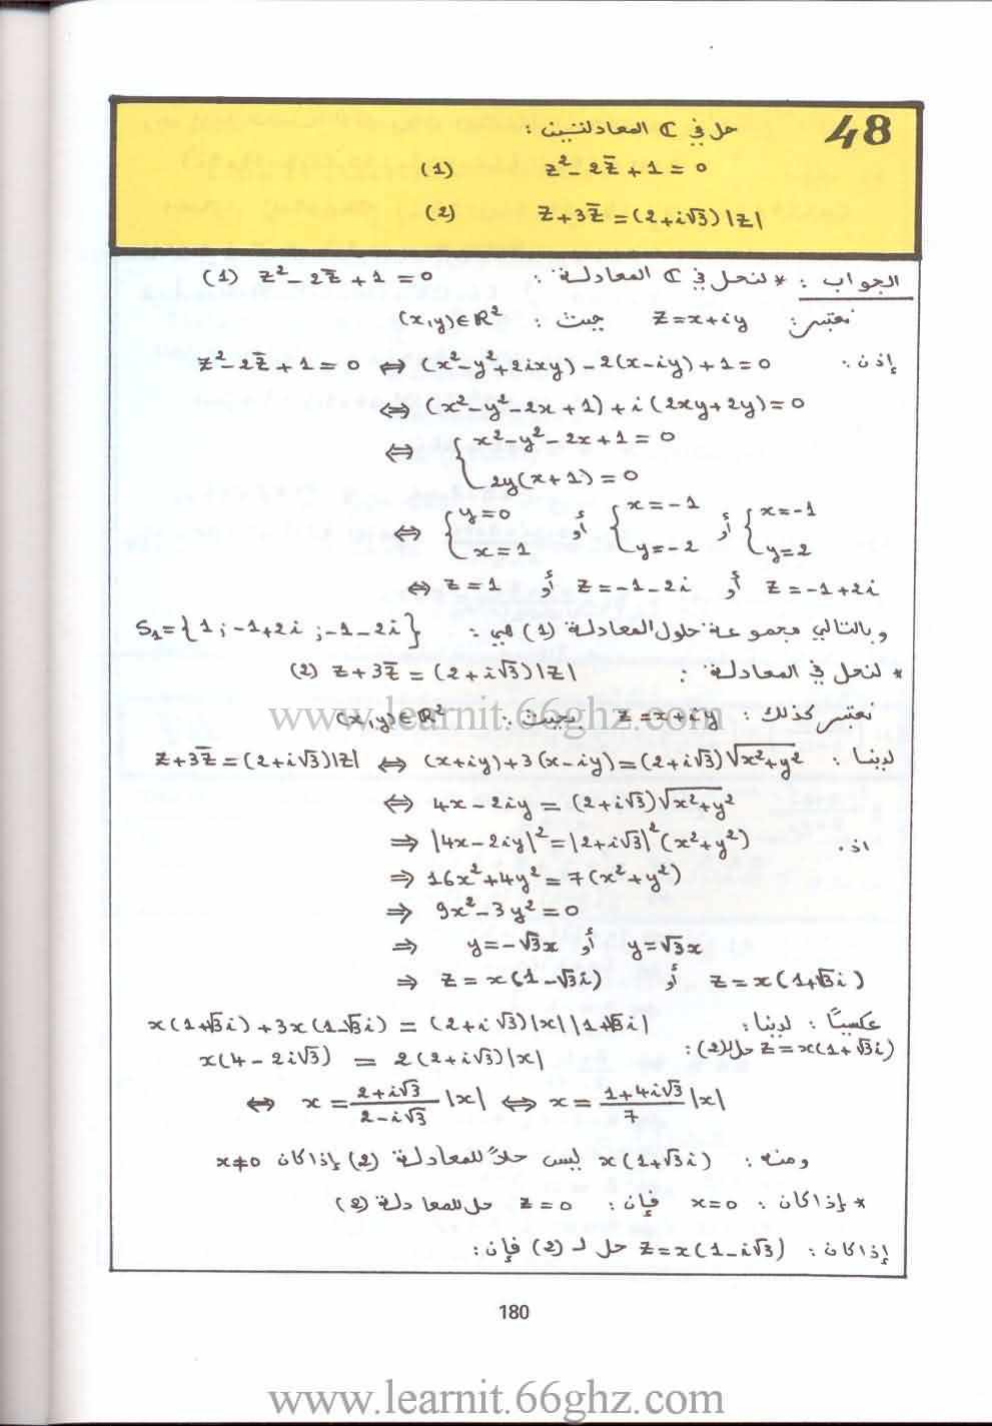 48 حل في ℂ المعادلتين :
z² - 2z̄ + 1 = 0 (1)
z + 3z̄ = (2+i√3)|z| (2)
الجواب : * لنحل في ℂ المعادلة : z² - 2z̄ + 1 = 0 (1)
نعتبر : z = x+iy حيث : (x,y)∈ℝ²
إذن : z² - 2z̄ + 1 = 0 ⇔ (x²-y²+2ixy) - 2(x-iy) + 1 = 0
⇔ (x²-y²-2x+1) + i(2xy+2y) = 0
⇔ { x²-y²-2x+1 = 0
2y(x+1) = 0
⇔ { y=0 أو { x=-1 أو { x=-1
x=1 y=-2 y=2
⇔ z=1 أو z=-1-2i أو z=-1+2i
و بالتالي مجموعة حلول المعادلة (1) هي : S₁={1 ; -1+2i ; -1-2i}
* لنحل في المعادلة : z + 3z̄ = (2+i√3)|z| (2)
نعتبر كذلك : z = x+iy بحيث : (x,y)∈ℝ²
www.learnit.66ghz.com
لدينا : z+3z̄ = (2+i√3)|z| ⇔ (x+iy)+3(x-iy) = (2+i√3)√(x²+y²)
⇔ 4x - 2iy = (2+i√3)√(x²+y²)
اذ . ⇒ |4x-2iy|² = |2+i√3|²(x²+y²)
⇒ 16x²+4y² = 7(x²+y²)
⇒ 9x² - 3y² = 0
⇒ y=-√3x أو y=√3x
⇒ z = x(1-√3i) أو z = x(1+√3i)
عكسيًا : لدينا : x(1+√3i) + 3x(1-√3i) = (2+i√3)|x||1+√3i|
z = x(1+√3i) حل لـ(2) : x(4-2i√3) = 2(2+i√3)|x|
⇔ x = (2+i√3)/(2-i√3) |x| ⇔ x = (1+4i√3)/7 |x|
ومنه : x(1+√3i) ليس حلاً للمعادلة (2) إذا كان x≠0
* إذا كان : x=0 فإن : z=0 حل للمعادلة (2)
إذا كان : z = x(1-i√3) حل لـ (2) فإن :
180
www.learnit.66ghz.com